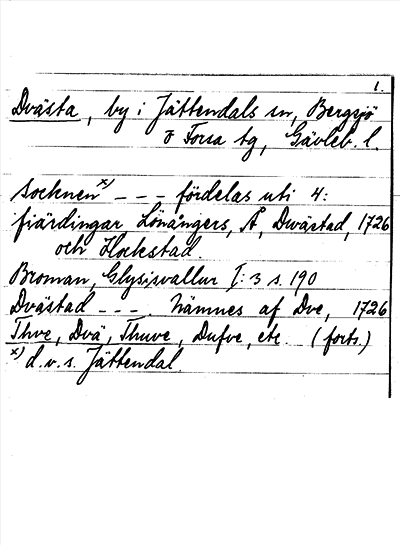 1.
Dvästa, by i Jättendals sn, Bergsjö
o Forsa tg, Gävleb. l.
Socknen x) - - - fördelas uti 4:
fjärdingar Lönångers, Å, Dwästad, 1726
och Hockstad.
Broman, Glysisvallur I: 3 s. 190
Dvästad - - - . Nämnes af Dve, 1726
Thve, Dvä, Thuve, Dufve, etc. (forts.)
x) d.v.s. Jättendal